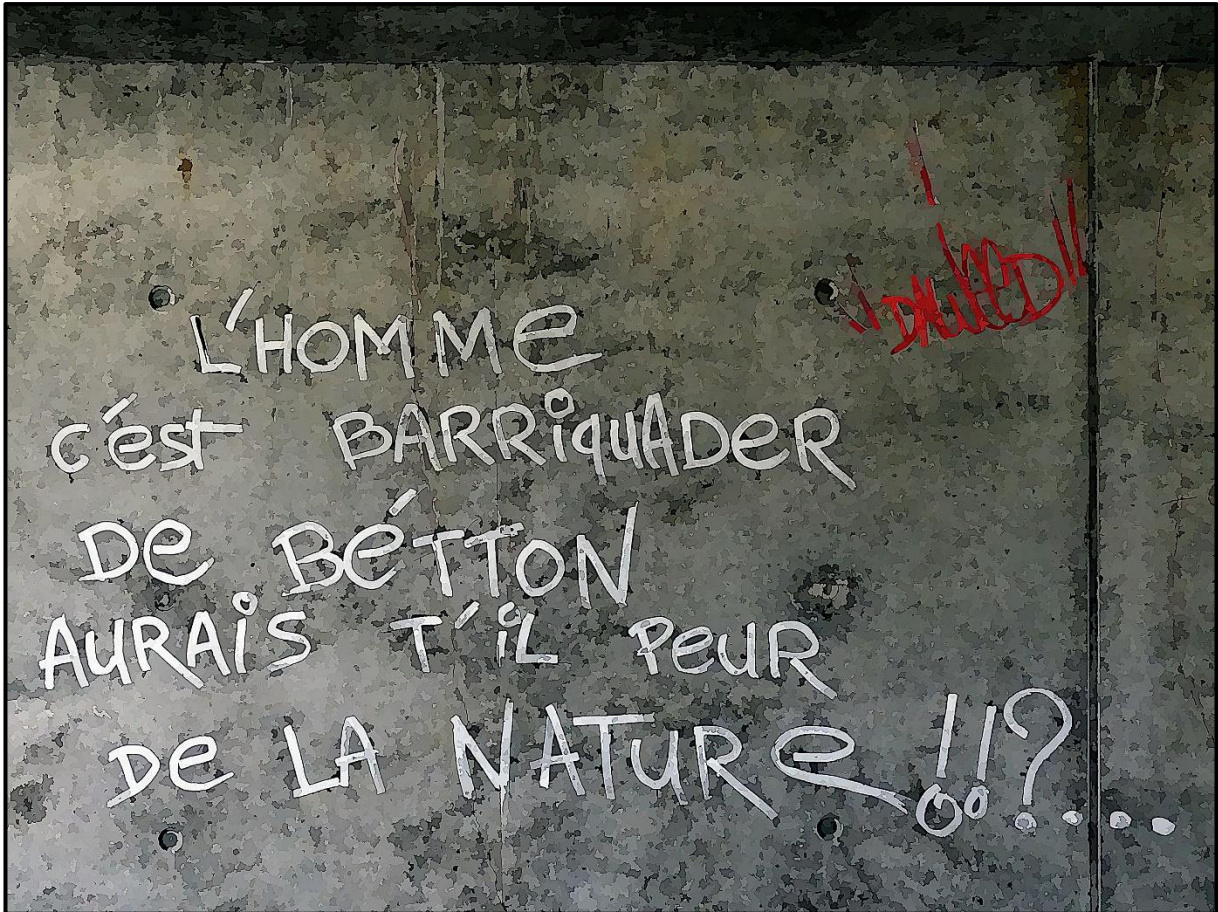 L'HOMMe
c'est BARRiquADeR
De BÉTTON
AURAiS T'iL PeuR
De LA NATuRe !!?....